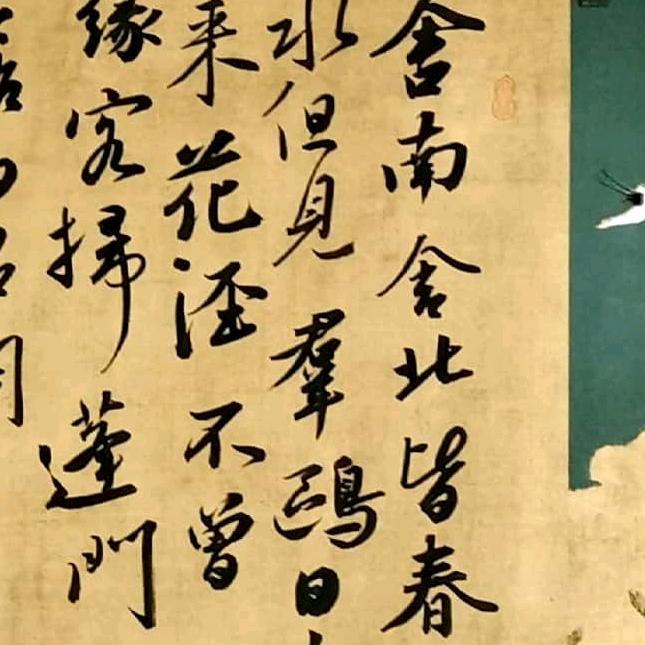 舍南舍北皆春
水但見羣鷗日
来花涇不曾
緣客掃蓬門